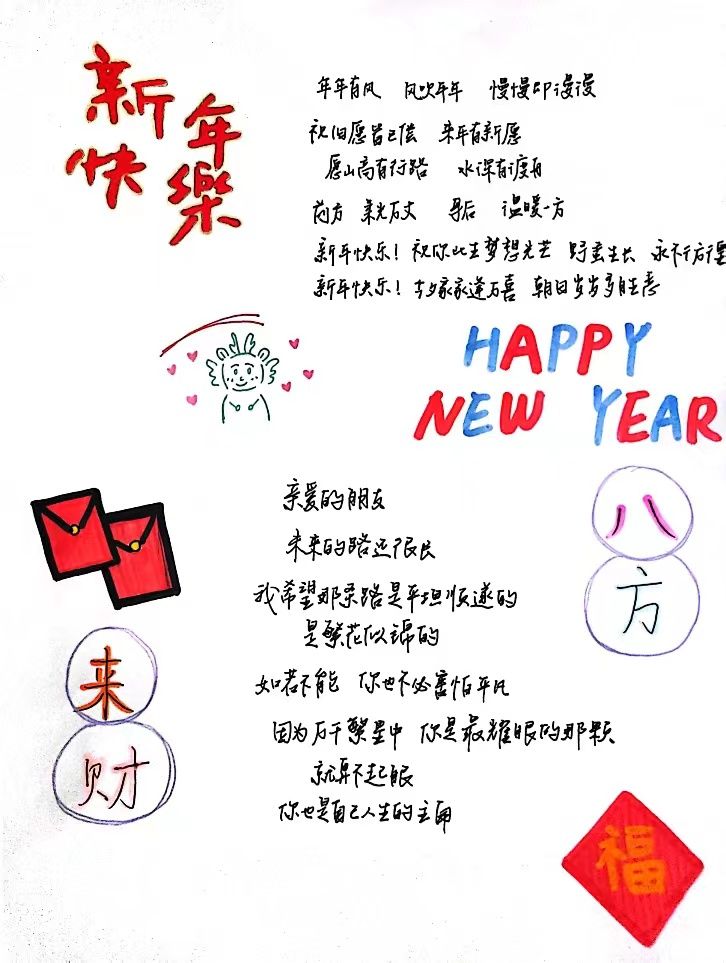 新年
快樂
年年有风 风吹年年 慢慢即漫漫
祝旧愿皆已偿 来年有新愿
愿山高有行路 水深有渡舟
前方 荣光万丈 身后 温暖一方
新年快乐！祝你此生梦想光芒 野蛮生长 永不
新年快乐！今夕家家逢万喜 朝日岁岁多胜意
HAPPY
NEW YEAR
亲爱的朋友
未来的路还很长
我希望那条路是平坦顺遂的
是繁花似锦的
如若不能 你也不必害怕平凡
因为万千繁星中 你是最耀眼的那颗
就算不起眼
你也是自己人生的主角
八
方
来
财
福